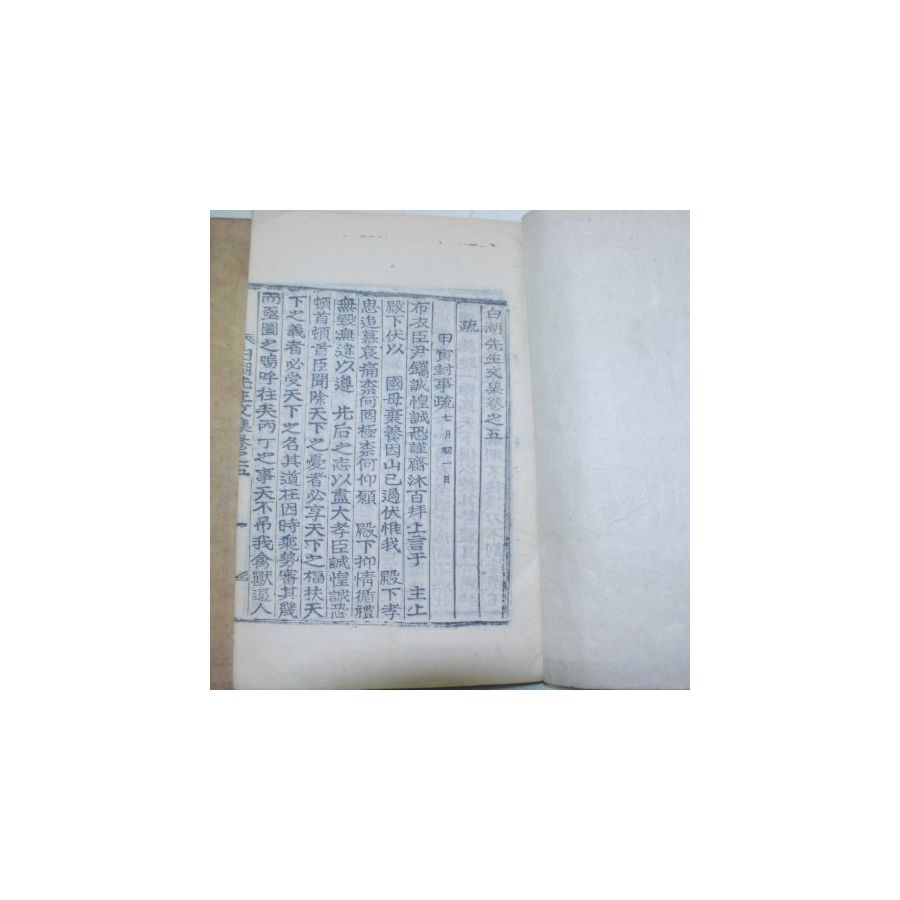 白湖先生文集卷之五
疏
甲寅封事疏 七月初一日
布衣臣尹鑴誠惶誠恐謹齋沐百拜上言于 主上
殿下伏以 國母棄養因山已過伏惟我 殿下孝
思追慕哀痛柰何罔極柰何仰願 殿下抑情循禮
無毀無違以遵 先后之志以盡大孝臣誠惶誠恐
頓首頓首臣聞除天下之憂者必享天下之福扶天
下之義者必受天下之名其道在因時乘勢審其幾
而亟圖之嗚呼往矣丙丁之事天不吊我禽獸逼人
白湖先生文集卷之五
一